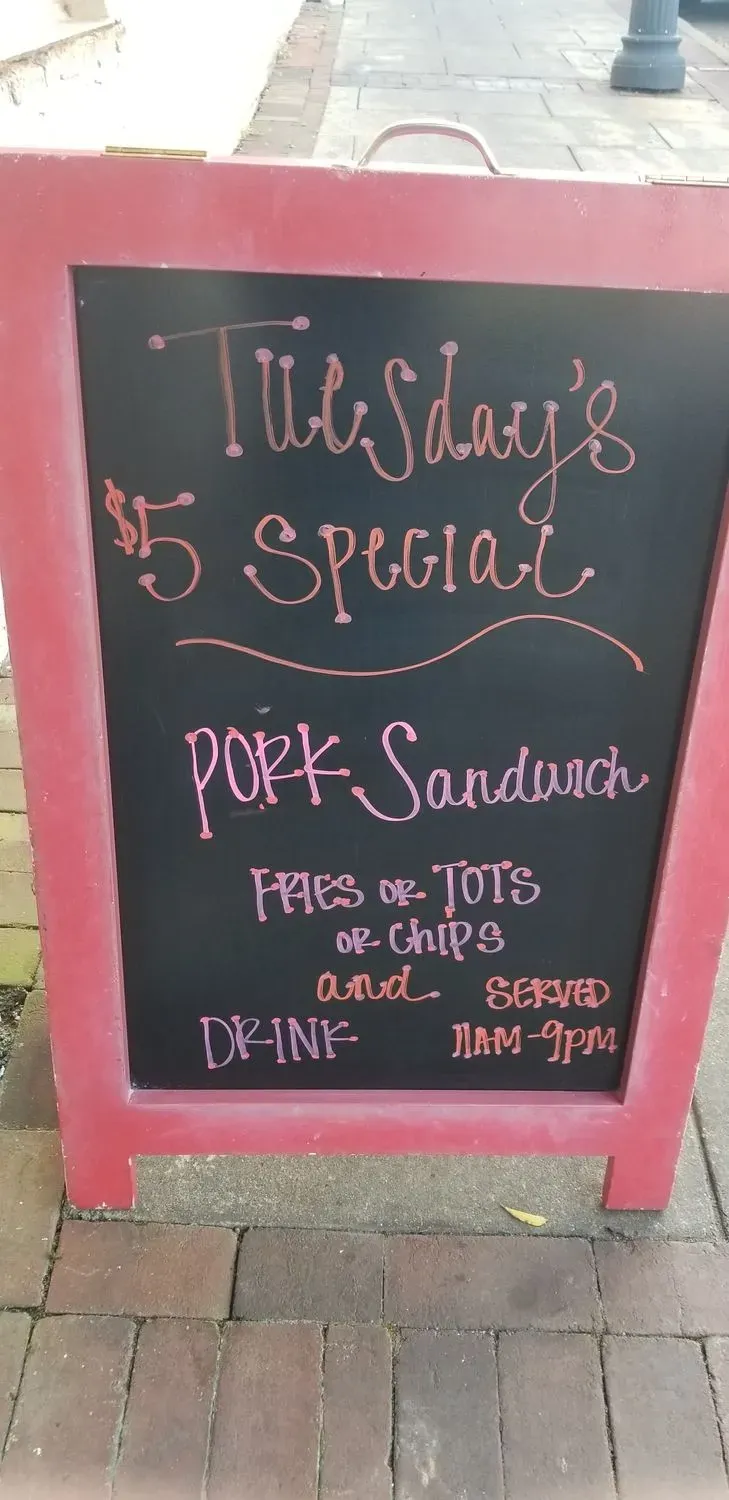 TUESday's
$5 Special
PORK Sandwich
FRIES OR TOTS
OR CHIPS
and
DRINK
SERVED
11AM-9PM